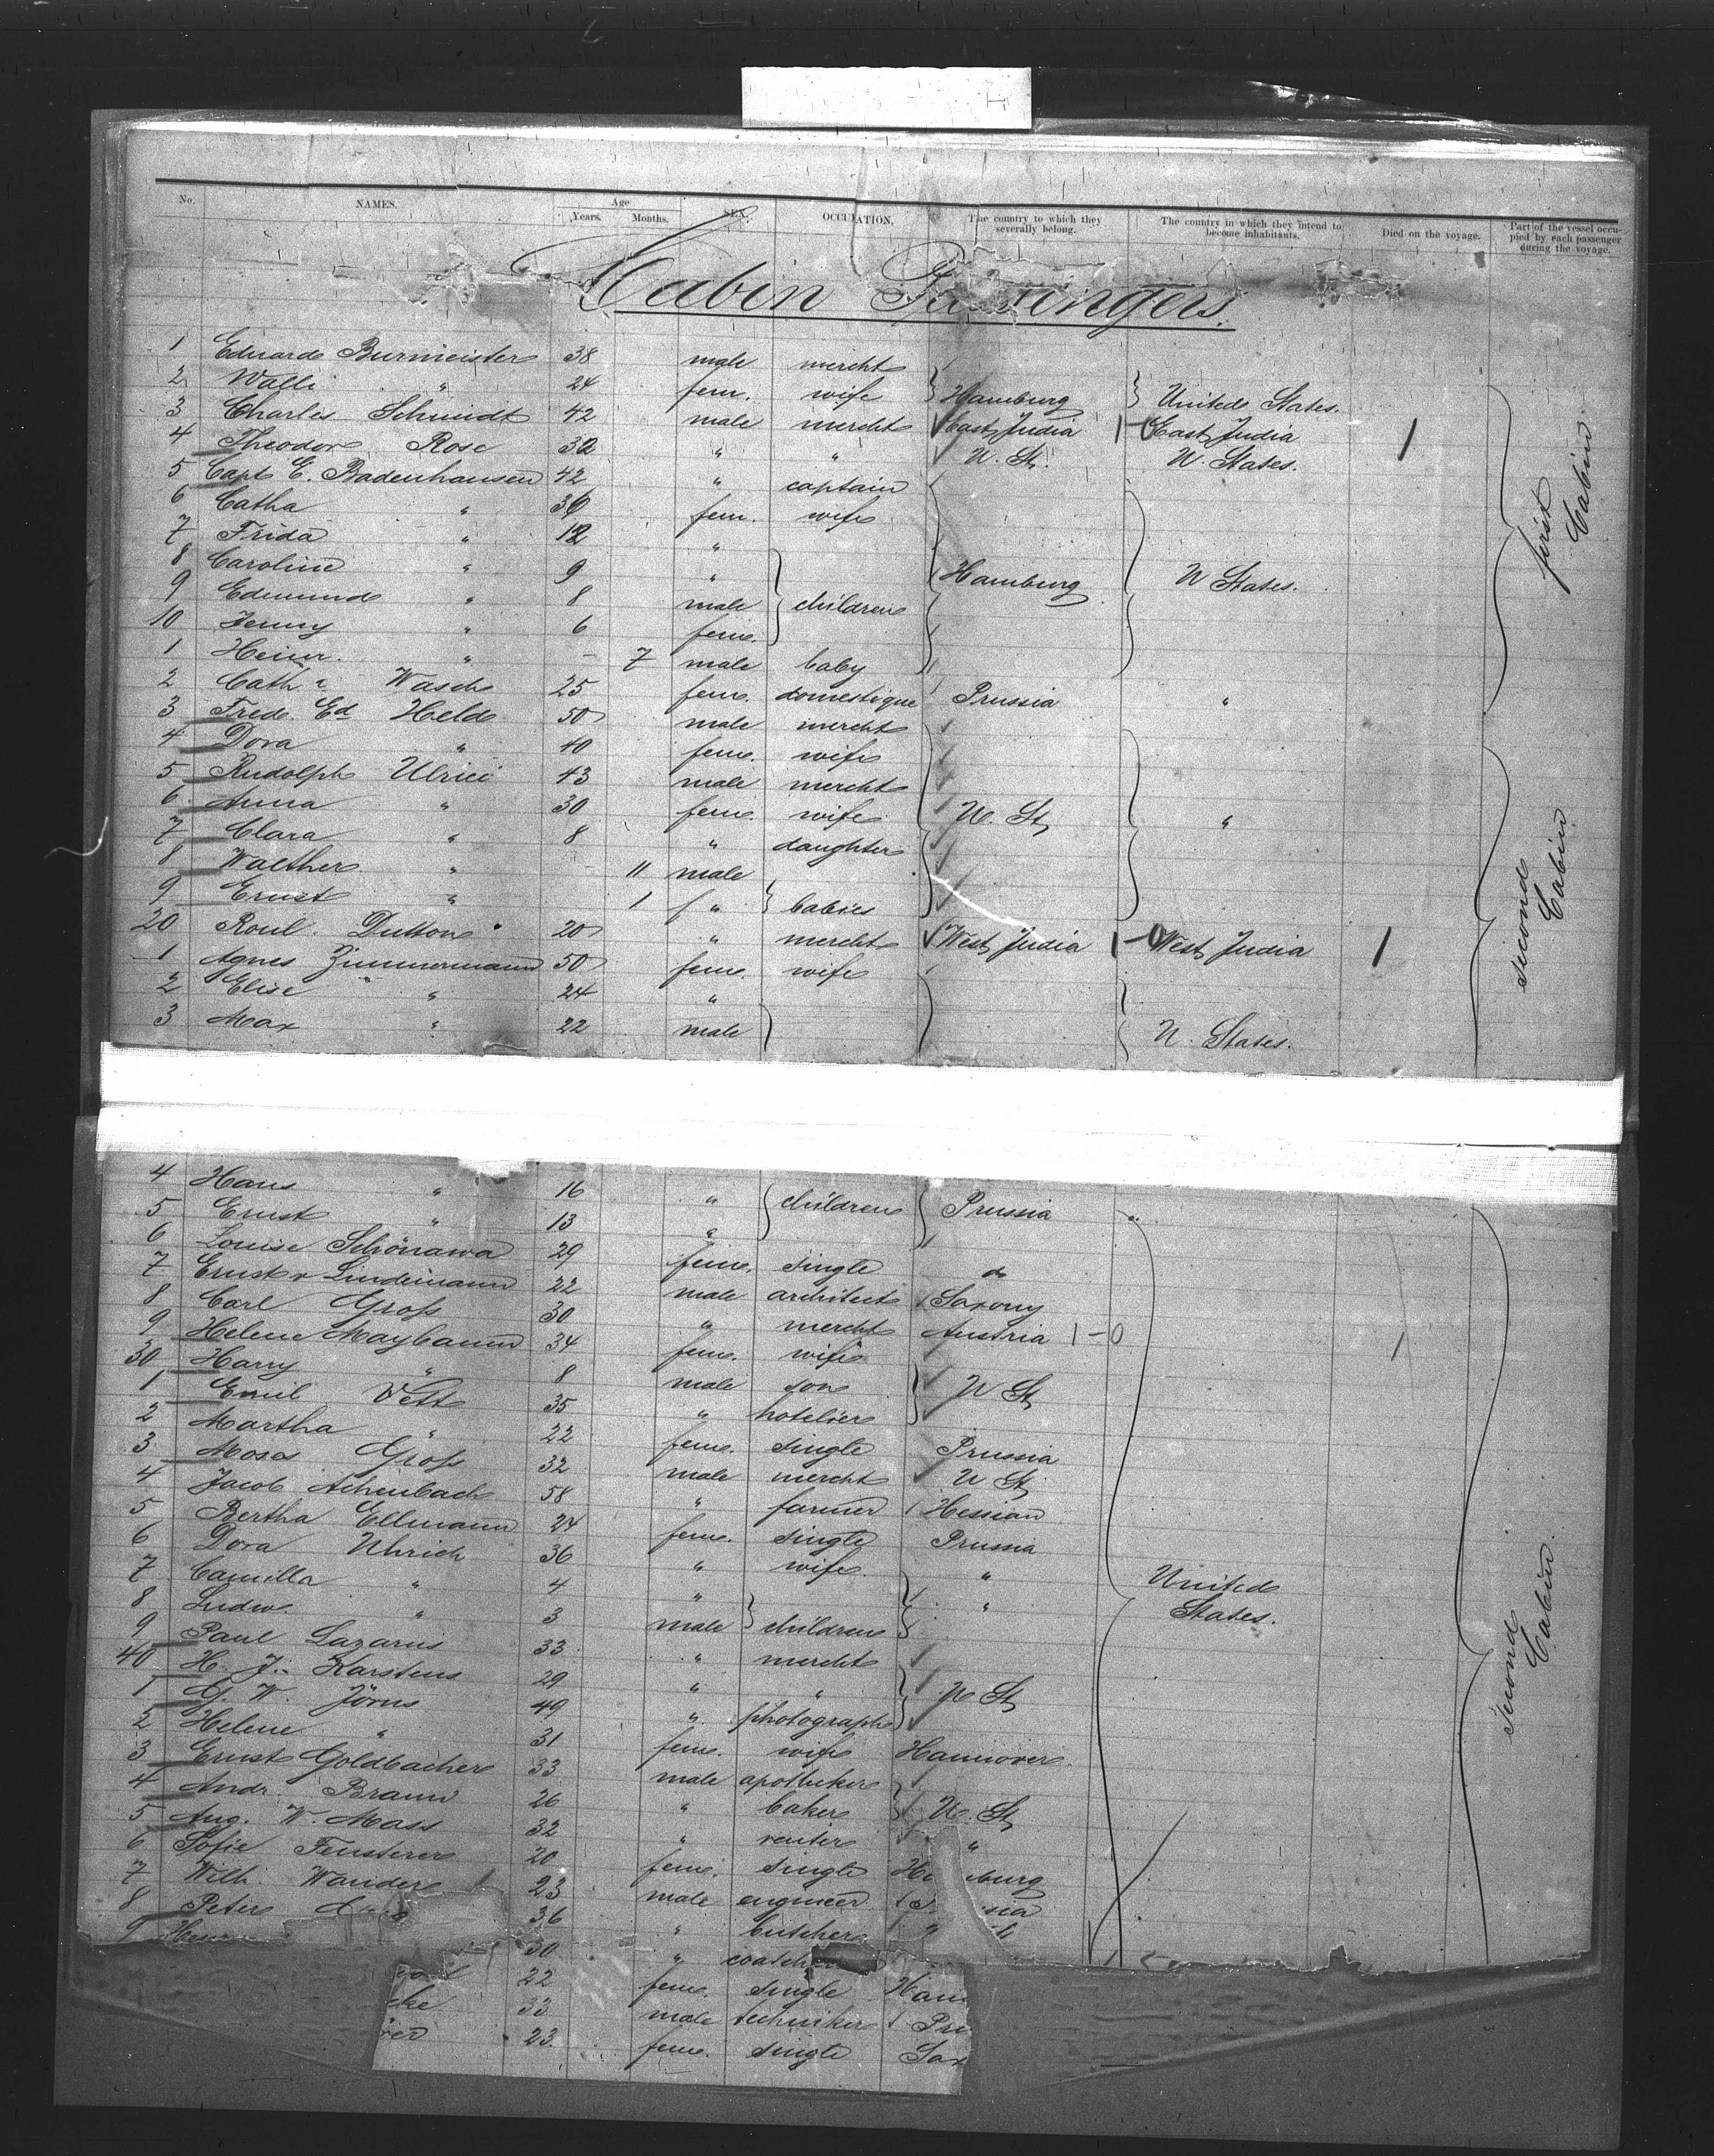 No. NAMES. Age Years. Months. SEX. OCCUPATION. The country to which they severally belong. The country in which they intend to become inhabitants. Died on the voyage. Part of the vessel occupied by each passenger during the voyage.
Cabin Passengers.
1 Eduard Burmeister 38 male mercht
2 Walli " 24 fem. wife Hamburg United States.
3 Charles Schmidt 42 male mercht East India 1-0 East India
4 Theodor Rose 32 " " U. St. U. States.
5 Capt E. Badenhausen 42 " captain
6 Catha " 36 fem. wife
7 Frida " 12 "
8 Caroline " 9 " Hamburg U States. first Cabin
9 Edmund " 8 male children
10 Jenny " 6 fem.
1 Heinr. " - 7 male baby
2 Cath. Wasch 25 fem. domestique Prussia "
3 Fred. Ed Held 50 male mercht
4 Dora " 40 fem. wife
5 Rudolph Ulrici 43 male mercht
6 Anna " 30 fem. wife U. St "
7 Clara " 8 " daughter
8 Walther " - 11 male
9 Ernst " 1 " babies second Cabin
20 Roul. Dutton 20 " mercht West India 1-0 West India
1 Agnes Zimmermann 50 fem. wife
2 Elise " 24 "
3 Max " 22 male U. States.
4 Hans " 16 " children Prussia "
5 Ernst " 13 "
6 Louise Schönawa 29 fem. single do
7 Ernst v Lindemann 22 male architect Saxony
8 Carl Groß 30 " mercht Austria 1-0
9 Helene Maybaum 34 fem. wife
30 Harry " 8 male son U St
1 Emil Vett 35 " hotelier
2 Martha " 22 fem. single Prussia
3 Moses Groß 32 male mercht U St
4 Jacob Achenbach 58 " farmer Hessian
5 Bertha Ellmann 24 fem. single Prussia
6 Dora Uhrich 36 " wife "
7 Camilla " 4 " " United
8 Ludw. " 3 male children States.
9 Paul Lazarus 33 " mercht
40 H. J. Karstens 29 " " U St second Cabin
1 G. W. Jörns 49 " photograph
2 Helene " 31 fem. wife Hannover
3 Ernst Goldbacher 33 male apotheker
4 Andr. Braun 26 " baker U. St
5 Aug. W. Mass 32 " rentier "
6 Sofie Fensterer 20 fem. single
7 Wilh. Wander 23 male engineer
8 Peter 36 " butcher "
9 30 "
22 fem. single
33 male techniker
23 fem. single